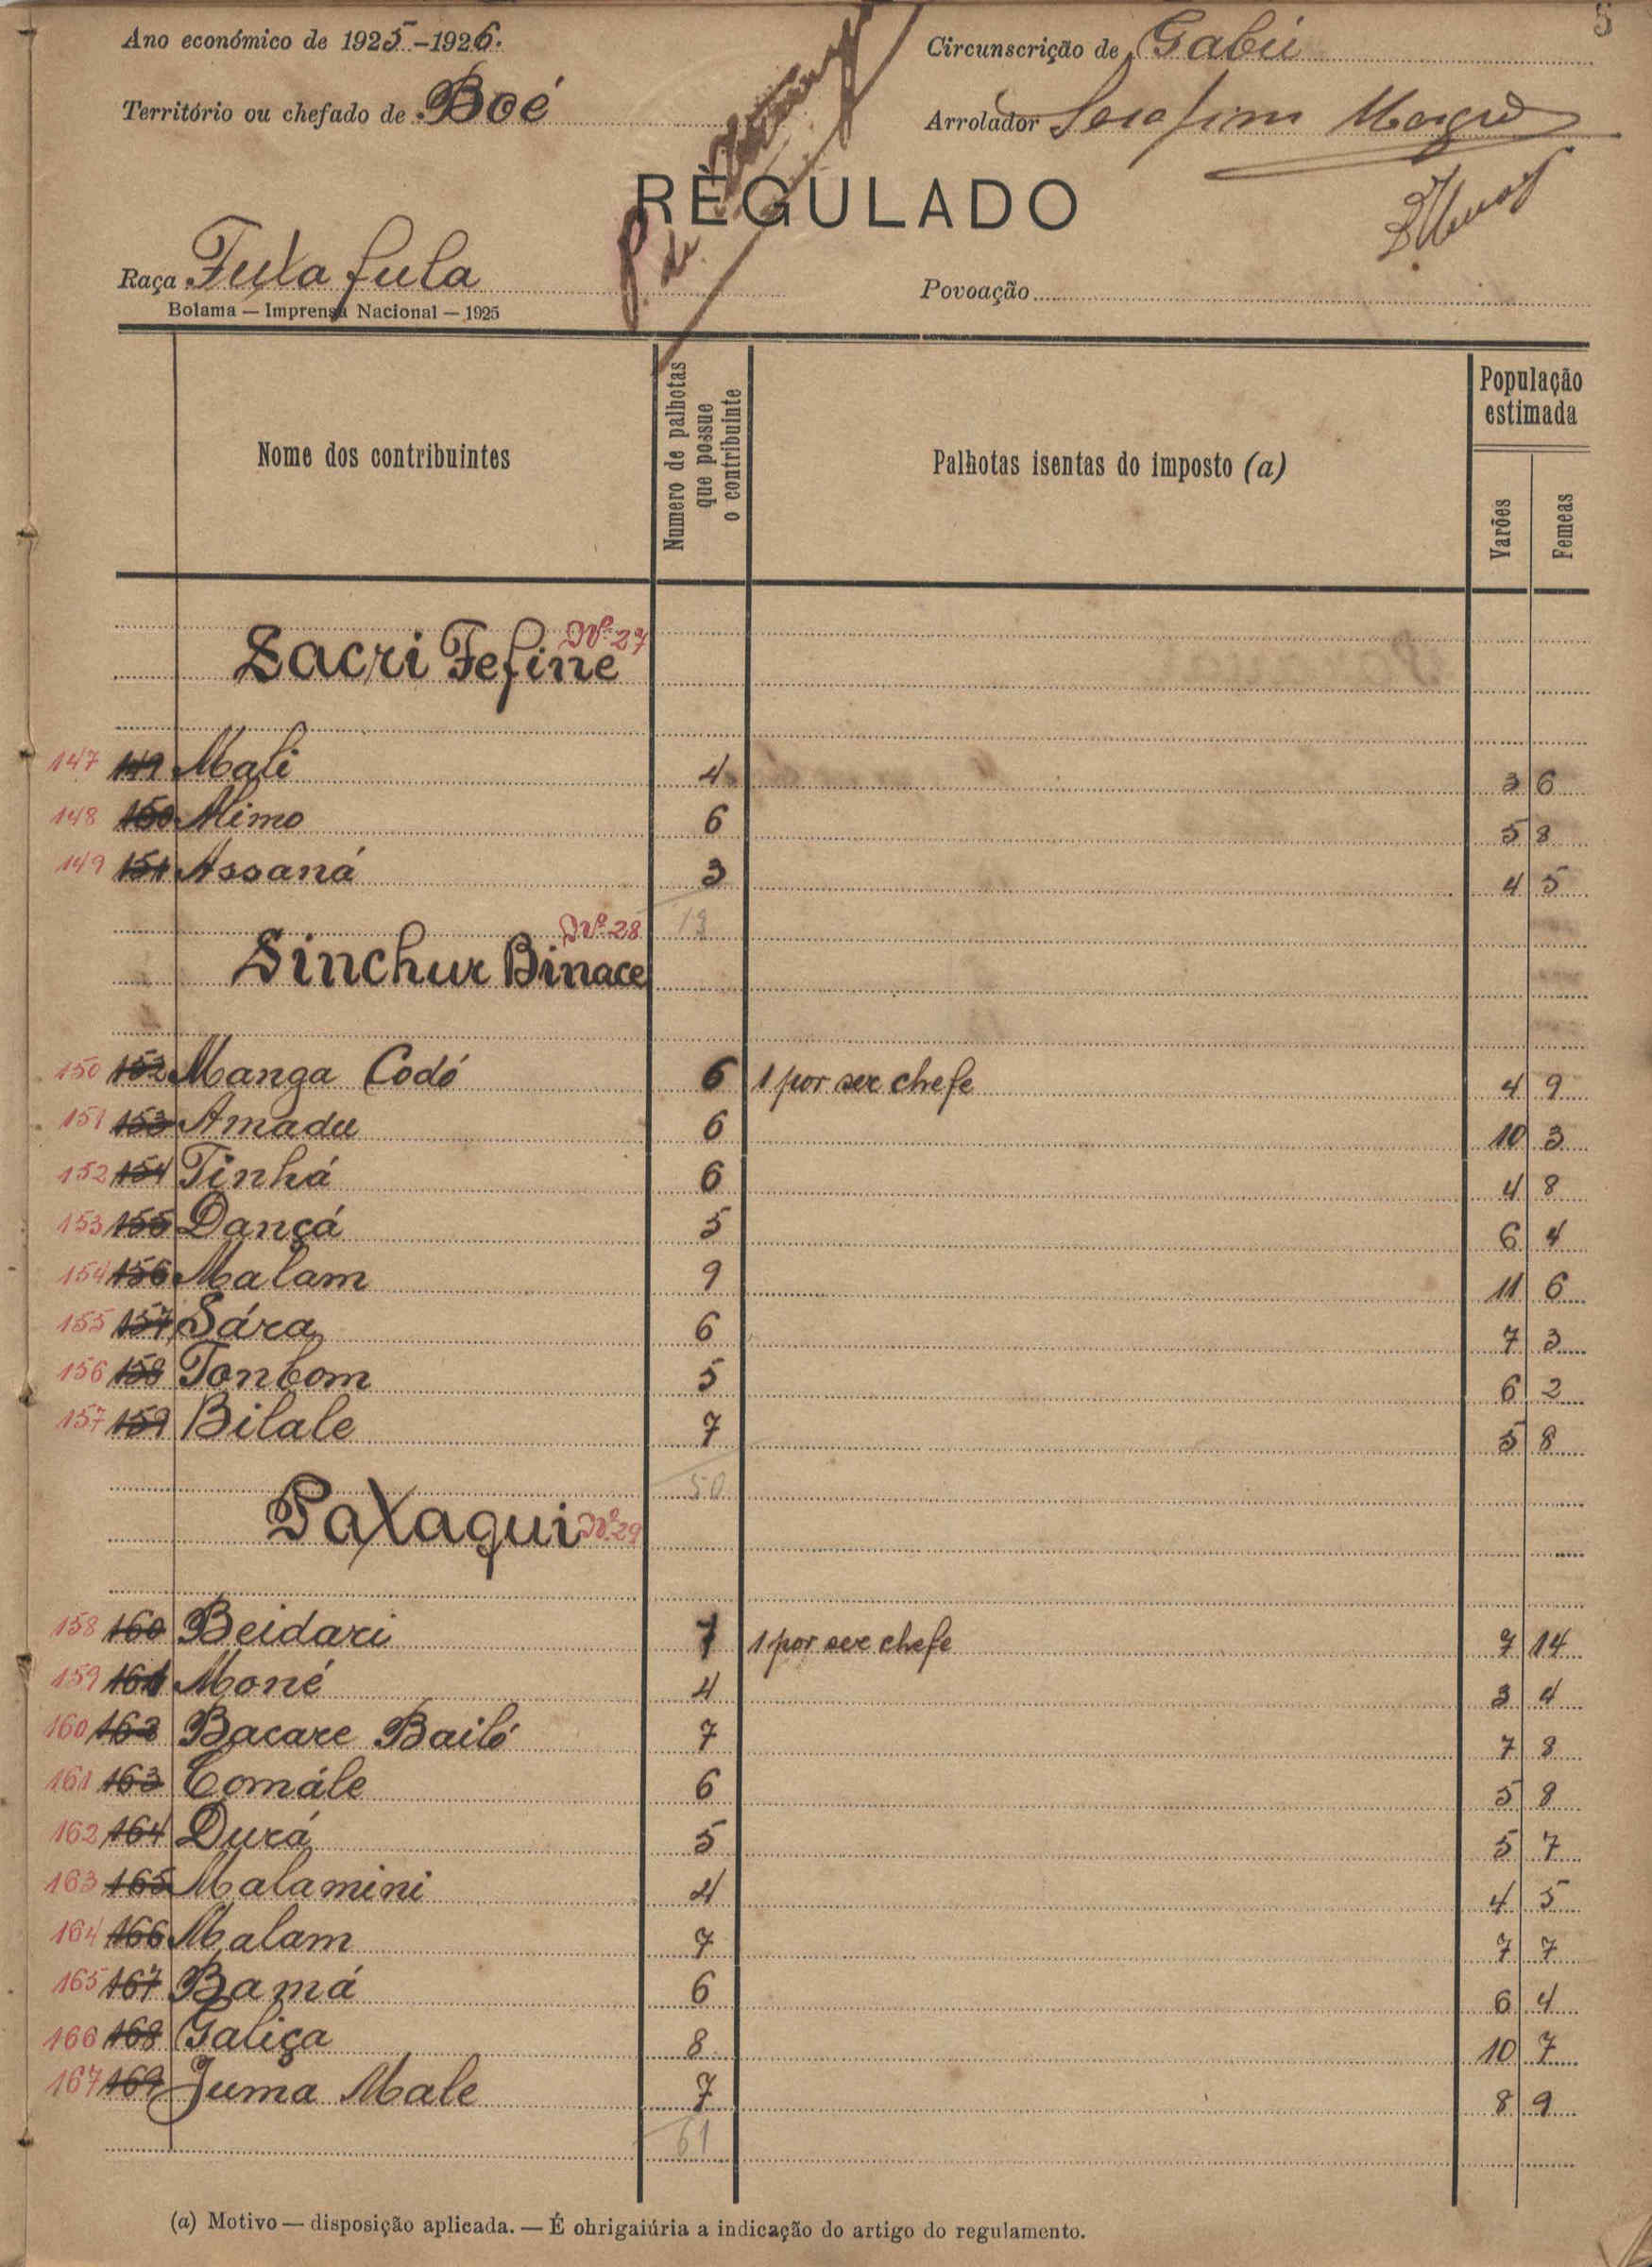 5
Ano económico de 1925-1926.
Circunscrição de Gabú
Território ou chefado de Boé
Arrolador Serafim
REGULADO
Raça Futa fula
Povoação
Bolama — Imprensa Nacional — 1925
Nome dos contribuintes
Numero de palhotas que possue o contribuinte
Palhotas isentas do imposto (a)
População estimada
Varões
Femeas
Nº 27
Sacri Fefine
147 149 Mali 4 3 6
148 150 Mimo 6 5 8
149 151 Assaná 3 4 5
13
Nº 28
Sinchur Binace
150 152 Manga Codó 6 1 por ser chefe 4 9
151 153 Amadu 6 10 3
152 154 Tinhá 6 4 8
153 155 Dançá 5 6 4
154 156 Malam 9 11 6
155 157 Sára 6 7 3
156 158 Tonbom 5 6 2
157 159 Bilale 7 5 8
50
Paxaqui Nº 29
158 160 Beidari 7 1 por ser chefe 7 14
159 161 Moné 4 3 4
160 162 Bacare Bailó 7 7 8
161 163 Comále 6 5 8
162 164 Durá 5 5 7
163 165 Malamini 4 4 5
164 166 Malam 7 7 7
165 167 Bamá 6 6 4
166 168 Galiça 8 10 7
167 169 Juma Male 7 8 9
61
(a) Motivo — disposição aplicada. — É ohrigaiúria a indicação do artigo do regulamento.